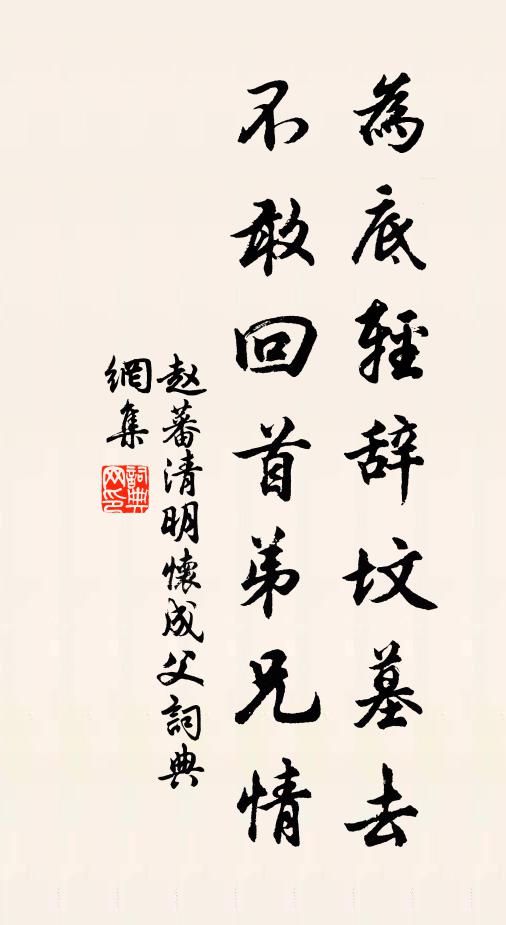 為底輕辞坟墓去
不敢回首弟兄情
赵蕃清明懷成父詞典
網集
詞典网印